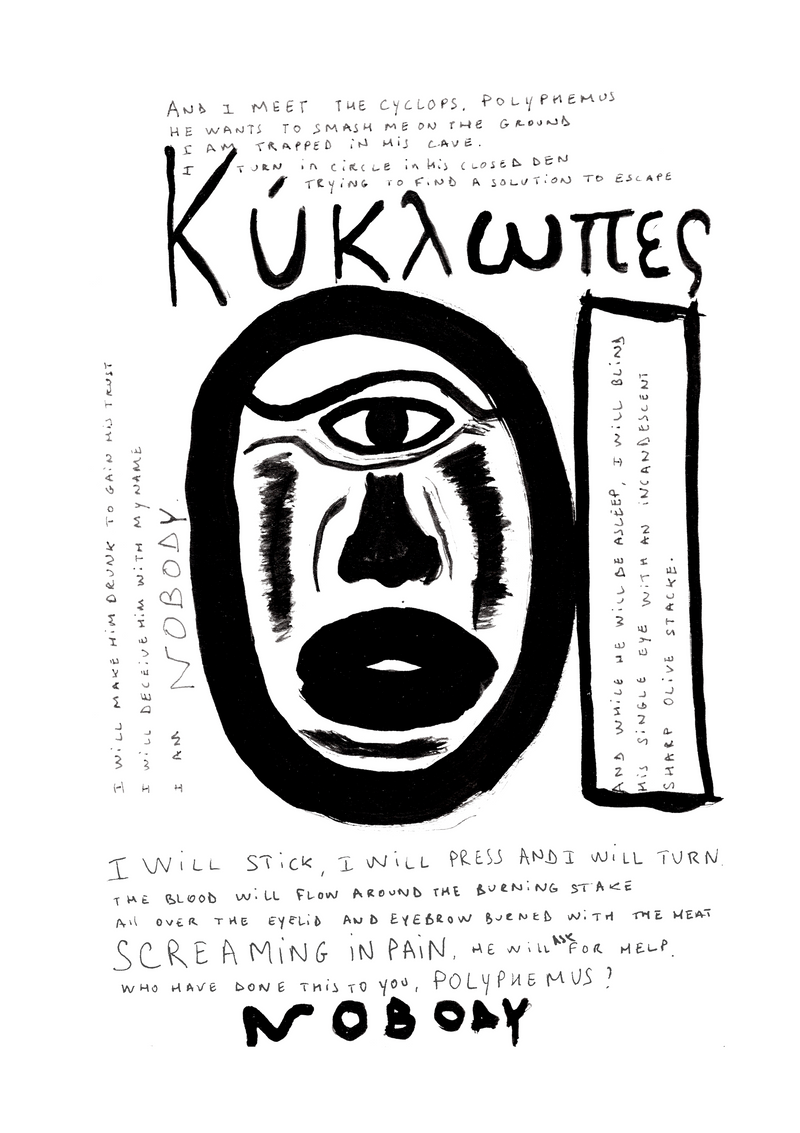 AND I MEET THE CYCLOPS, POLYPHEMUS
HE WANTS TO SMASH ME ON THE GROUND
I AM TRAPPED IN HIS CAVE.
I TURN in CIRCLE in His CLOSED DEN
TRYING TO FIND A SOLUTION TO ESCAPE
Κύκλωπες
I WILL MAKE HIM DRUNK TO GAIN HIS TRUST
I WILL DECEIVE HIM WITH MY NAME
I AM NOBODY.
AND WHILE HE WILL BE ASLEEP, I WILL BLIND
HIS SINGLE EYE WITH AN INCANDESCENT
SHARP OLIVE STACKE.
I WILL STICK, I WILL PRESS AND I WILL TURN.
THE BLOOD WILL FLOW AROUND THE BURNING STAKE
All OVER THE EYELID AND EYEBROW BURNED WITH THE HEAT
SCREAMING IN PAIN, HE WILL ASK FOR HELP.
WHO HAVE DONE THIS TO YOU, POLYPHEMUS?
NOBODY